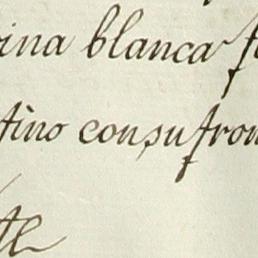 ina blanca f
tino consu fron